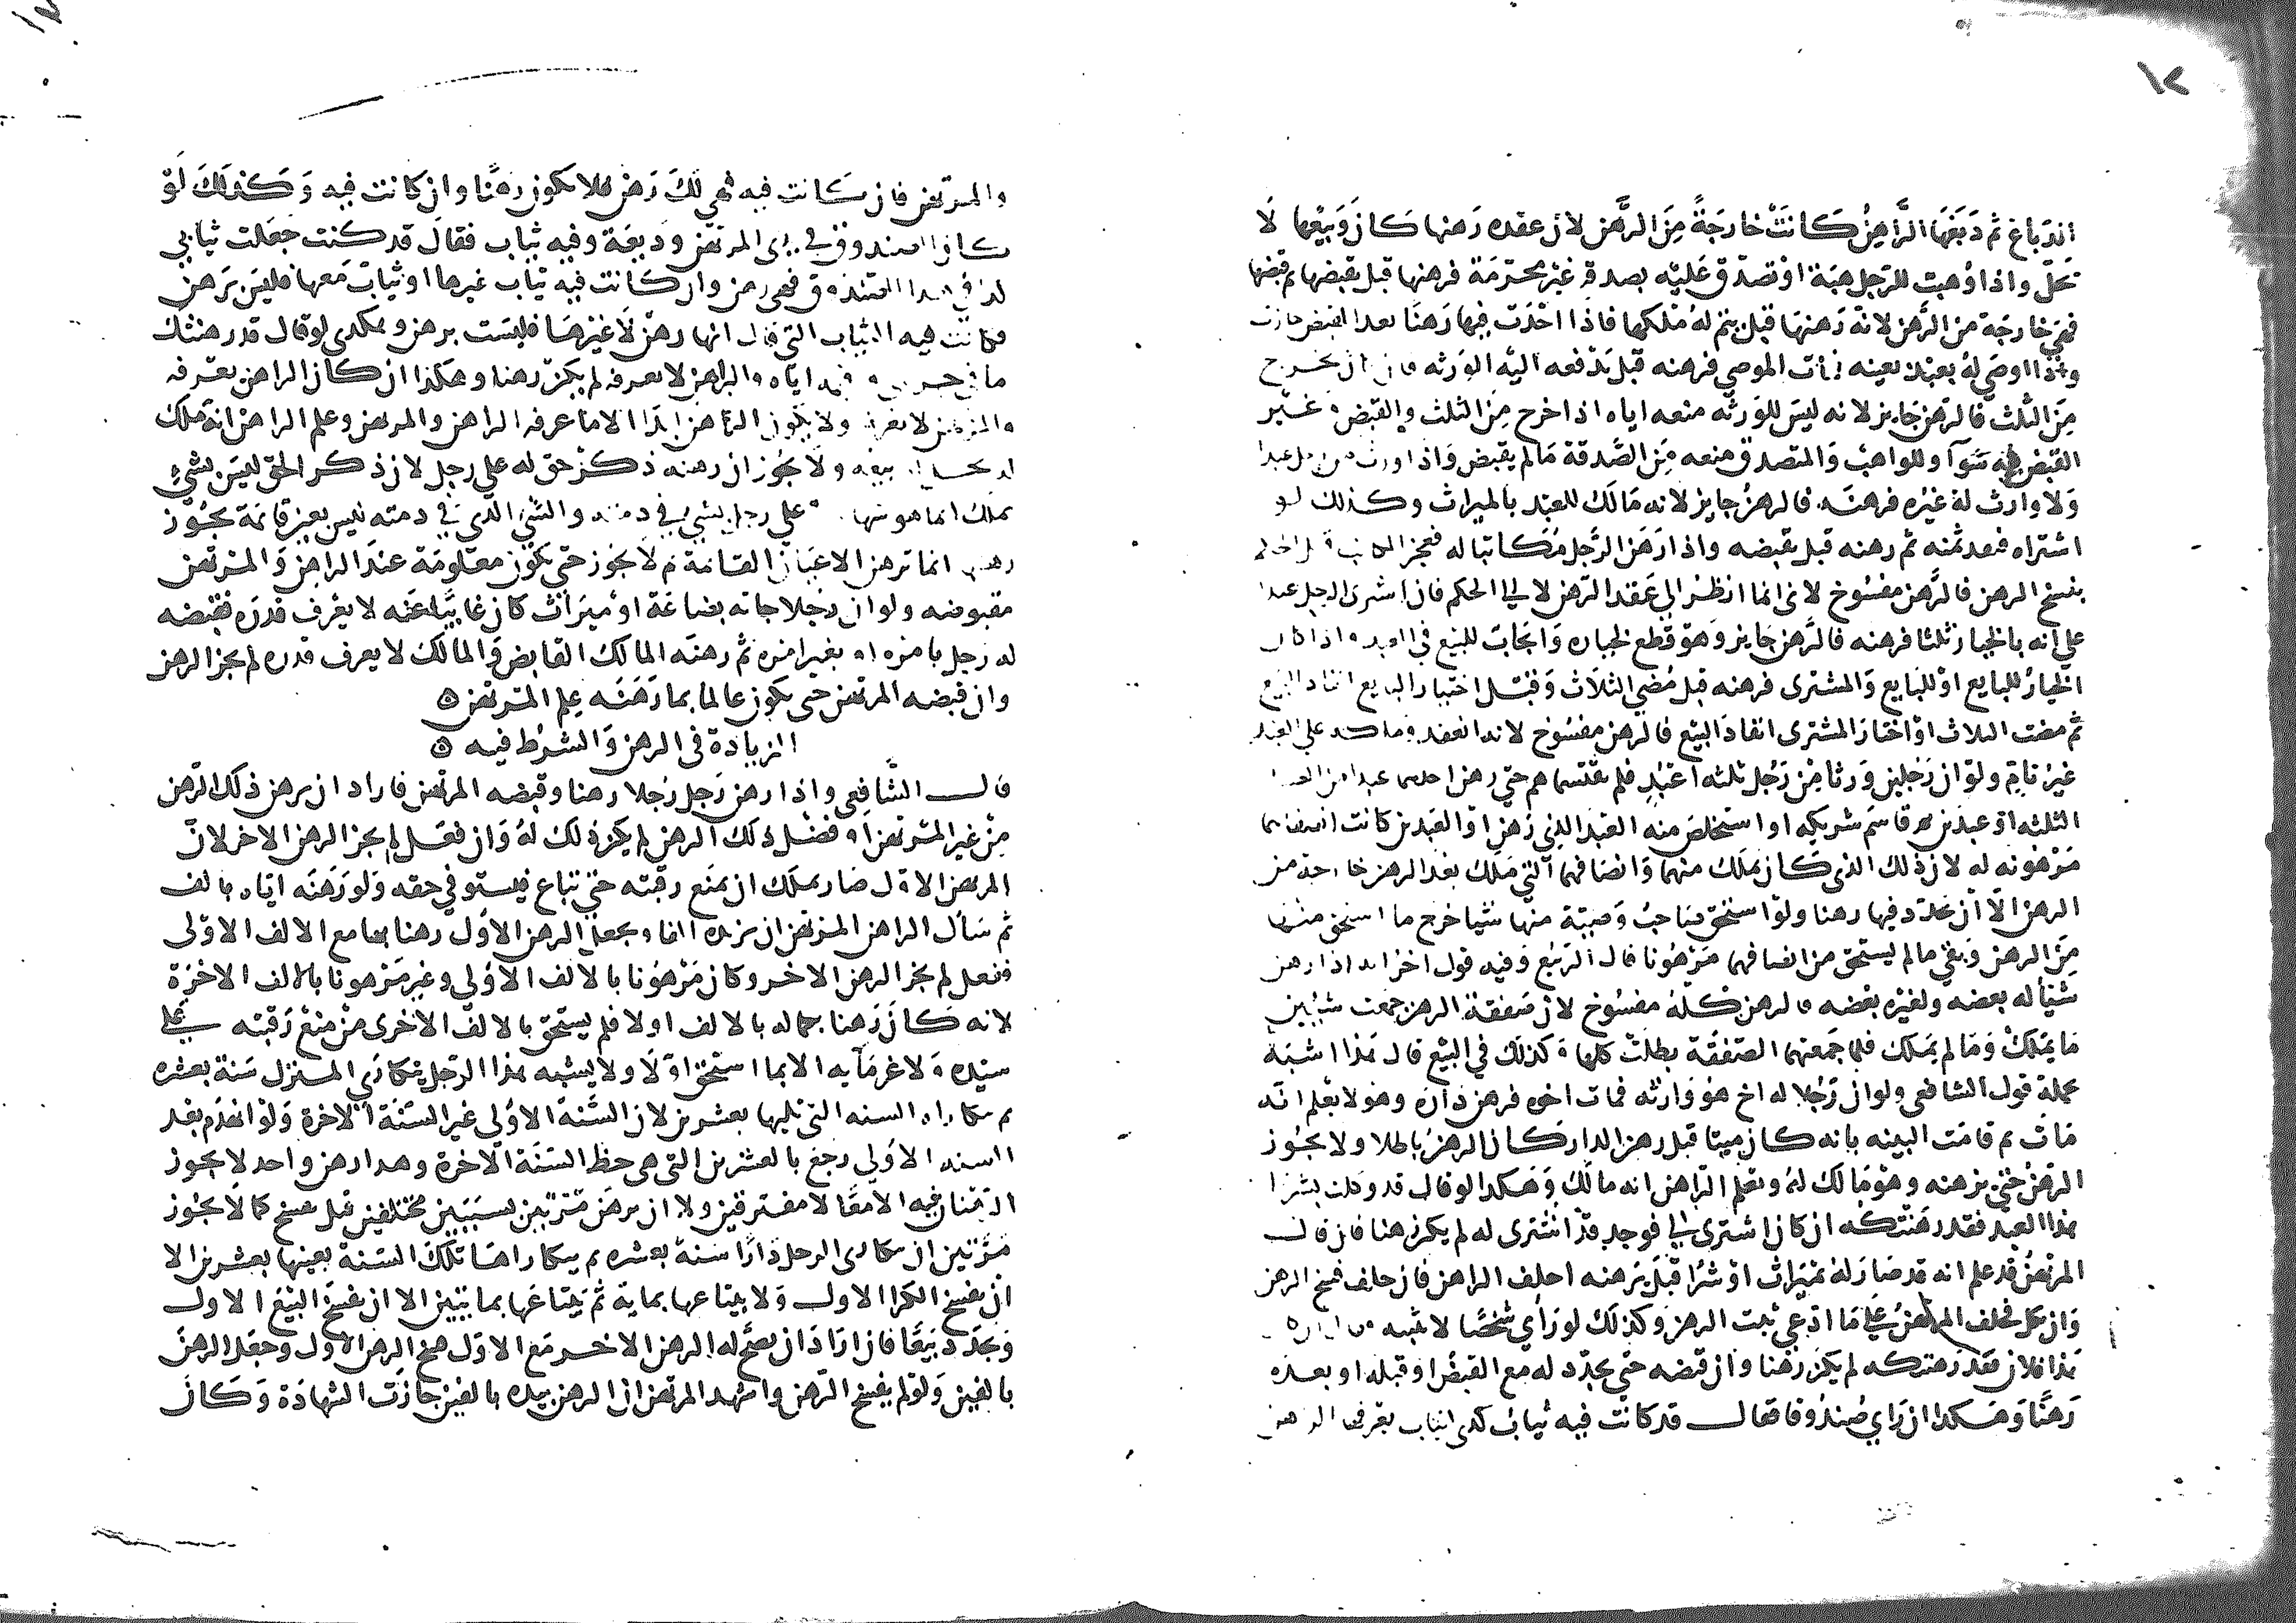 ١٢
الدباغ ثم دبغها الراهن كانت خارجة من الرهن لان عقده رهنها كان وبيعها لا
تحل واذا وهبت للرجل هبة او تصدق عليه بصدقة غير محرمة فرهنها قبل يقبضها ثم قبضها
فهي خارجة من الرهن لانه رهنها قبل يتم له ملكها فاذا احدث فيها رهنا بعد القبض جازت
واذا اوصى له بعبد بعينه فمات الموصي فرهنه قبل تدفعه اليه الورثه فان كان يخرج
من الثلث فالرهن جايز لانه ليس للورثه منعه اياه اذا خرج من الثلث والقبض وغير
القبض فيه سوآ وللواهب والمتصدق منعه من الصدقة مالم يقبض واذا ورث من رجل عبدا
ولا وارث له غيره فرهنه فالرهن جايز لانه مالك للعبد بالميراث وكذلك لو
اشتراه فنقد ثمنه ثم رهنه قبل يقبضه واذا رهن الرجل مكاتبا له فعجز المكاتب قبل الحكم
بفسخ الرهن فالرهن مفسوخ لانى انما انظر الى عقد الرهن لا الى الحكم فان اشترى الرجل عبدا
على انه بالخيار ثلثا فرهنه فالرهن جايز وهو قطع لخياره وايجاب للبيع في العبد واذا كان
الخيار للبايع او للبايع والمشترى فرهنه قبل مضي الثلاث وقبل اختيار البايع انفاذ البيع
ثم مضت الثلاث او اختار المشترى انفاذ البيع فالرهن مفسوخ لانه انعقد وملكه على العبد
غير تام ولو ان رجلين ورثا من رجل ثلثه اعبد فلم يقتسماهم حتى رهن احدهما عبدا من العبيد
الثلثه او عبدين ثم قاسم شريكه او استخلص منه العبد الذي رهن او العبدين كانت انصافهما
مرهونه له لان ذلك الذي كان يملك منهما وانصافهما التي ملك بعد الرهن خارجة من
الرهن الا ان يجدد فيها رهنا ولو استحق صاحب وصية منها شيا خرج ما استحق منها
من الرهن وبقي مالم يستحق من انصافهما مرهونا قال الربيع وفيه قول اخر انه اذا رهن
شيأ له بعضه ولغيره بعضه فالرهن كله مفسوخ لان صفقة الرهن جمعت شيئين
ما يملك وما لم يملك فلما جمعتهما الصفقة بطلت كلها وكذلك في البيع قال هذا اشبه
بجملة قول الشافعى ولو ان رجلا له اخ هو وارثه فمات اخوه فرهن داره وهو لا يعلم انه
مات ثم قامت البينه بانه كان ميتا قبل رهن الدار كان الرهن باطلا ولا يجوز
الرهن حتى يرهنه وهو مالك له ويعلم الراهن انه مالك وهكذا لو قال قد وكلت بشرا
هذا العبد فقد رهنتكه ان كان اشترى لي فوجد قد اشترى له لم يكن رهنا فان قال
المرتهن قد علم انه قد صار له بميراث او شرا قبل يرهنه احلف الراهن فان حلف فسخ الرهن
وان نكل فحلف المرتهن على ما ادعى ثبت الرهن وكذلك لو رأى شخصا لا يثبته
هذا فلان فقد رهنتكه لم يكن رهنا وان قبضه حتى يجدد له مع القبض او قبله او بعده
رهنا وهكذا ان راي صندوقا فقال قد كانت فيه ثياب كذى لثياب يعرفها الراهن
والمرتهن فان كانت فيه فهي لك رهن فلا يكون رهنا وان كانت فيه وكذلك لو
كان الصندوق في يدى المرتهن وديعة وفيه ثياب فقال قد كنت جعلت ثيابي
كذا في هذا الصندوق فهي رهن وان كانت فيه ثياب غيرها او ثياب معها فليس برهن
فكانت فيه الثياب التي قال انها رهن لا غيرها فليست برهن وهكذى لو قال قد رهنتك
ما في اياه والراهن لا يعرفه لم يكن رهنا وهكذا ان كان الراهن يعرفه
والمرتهن لا يعرفه ولا يكون الرهن ابدا الا ما عرفه الراهن والمرتهن وعلم الراهن انه ملك
له يحل بيعه ولا يجوز ان رهنه ذكر حق له على رجل لان ذكر الحق ليس بشيء
يملك انما هو شهادة على رجل بشئ في ذمته والشئ الذي في ذمته ليس بعين قائمة يجوز
رهنها انما ترهن الاعيان القائمة ثم لا يجوز حتى تكون معلومة عند الراهن والمرتهن
مقبوضه ولو ان رجلا جاته بضاعة او ميراث كان غايبا عنه لا يعرف قدره فقبضه
له رجل بامره او بغير امره ثم رهنه المالك القابض والمالك لا يعرف قدره لم يجز الرهن
وان قبضه المرتهن حتى يكون عالما بما رهنه علم المرتهن ٥
الزيادة في الرهن والشرط فيه ٥
قال الشافعى واذا رهن رجل رجلا رهنا وقبضه المرتهن فاراد ان يرهن ذلك الرهن
من غير المرتهن او فضل ذلك الرهن لم يكن ذلك له وان فعل لم يجز الرهن الاخر لان
المرتهن الاول صار يملك ان يمنع رقبته حتى تباع فيستوفي حقه ولو رهنه اياه بالف
ثم سأل الراهن المرتهن ان يزيده الفا ويجعل الرهن الاول رهنا بها مع الالف الاولى
ففعل لم يجز الرهن الاخر وكان مرهونا بالالف الاولى وغير مرهونا بالالف الاخرة
لانه كان رهنا بكماله بالالف اولا فلم يستحق بالالف الاخرى من منع رقبته على
سيده ولا غرمآيه الا بما استحق اولا ولا يشبه هذا الرجل يتكارى المنزل سنة بعشره
ثم يتكاراه السنه التي تليها بعشرين لان السنة الاولى غير السنة الاخرة ولو انهدم بعد
السنه الاولى رجع بالعشرين التي هي حظ السنة الاخرة وهذا رهن واحد لا يجوز
الرهنان فيه الا معا لا مفترقين ولا ان يرهن مرتين بسببين مختلفين قبل يفسخ كما لا يجوز
مرتين ان يتكارى الرجل دارا سنة بعشره ثم يتكاراها تلك السنة بعينها بعشرين الا
ان يفسخ الكرا الاول ولا يبتاعها بماية ثم يبتاعها بمايتين الا ان يفسخ البيع الاول
ويجدد بيعا فان اراد ان يصح له الرهن الاخر مع الاول فسخ الرهن الاول وجعل الرهن
بالفين ولو لم يفسخ الرهن واشهد المرتهن ان الرهن بيده بالفين جازت الشهادة وكان